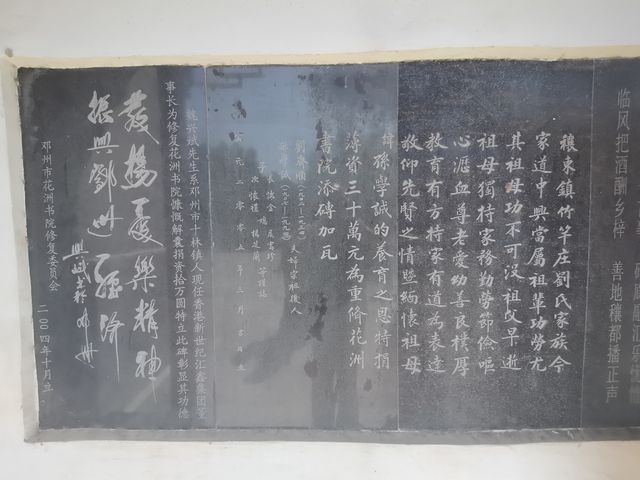 临风把酒酬乡梓
善地穰都播正声
穰東鎮竹竿庄劉氏家族今
家道中興當屬祖輩功勞尤
其祖母功不可沒祖父早逝
祖母獨持家務勤勞節儉嘔
心瀝血尊老愛幼善良樸厚
教育有方持家有道為表達
敬仰先賢之情暨緬懷祖母
學誠的養育之恩特捐
薄資三十萬元為重修花洲
書院添磚加瓦
夫婦
公元二零零五年三月吉日立
魏兴斌先生系邓州市十林镇人现任香港新世纪汇鑫集团董
事长为修复花洲书院慷慨解囊捐资拾万圆特立此碑彰显其功德
發揚憂樂精神
振興鄧州經濟
邓州市花洲书院修复委员会
二〇〇四年十月立